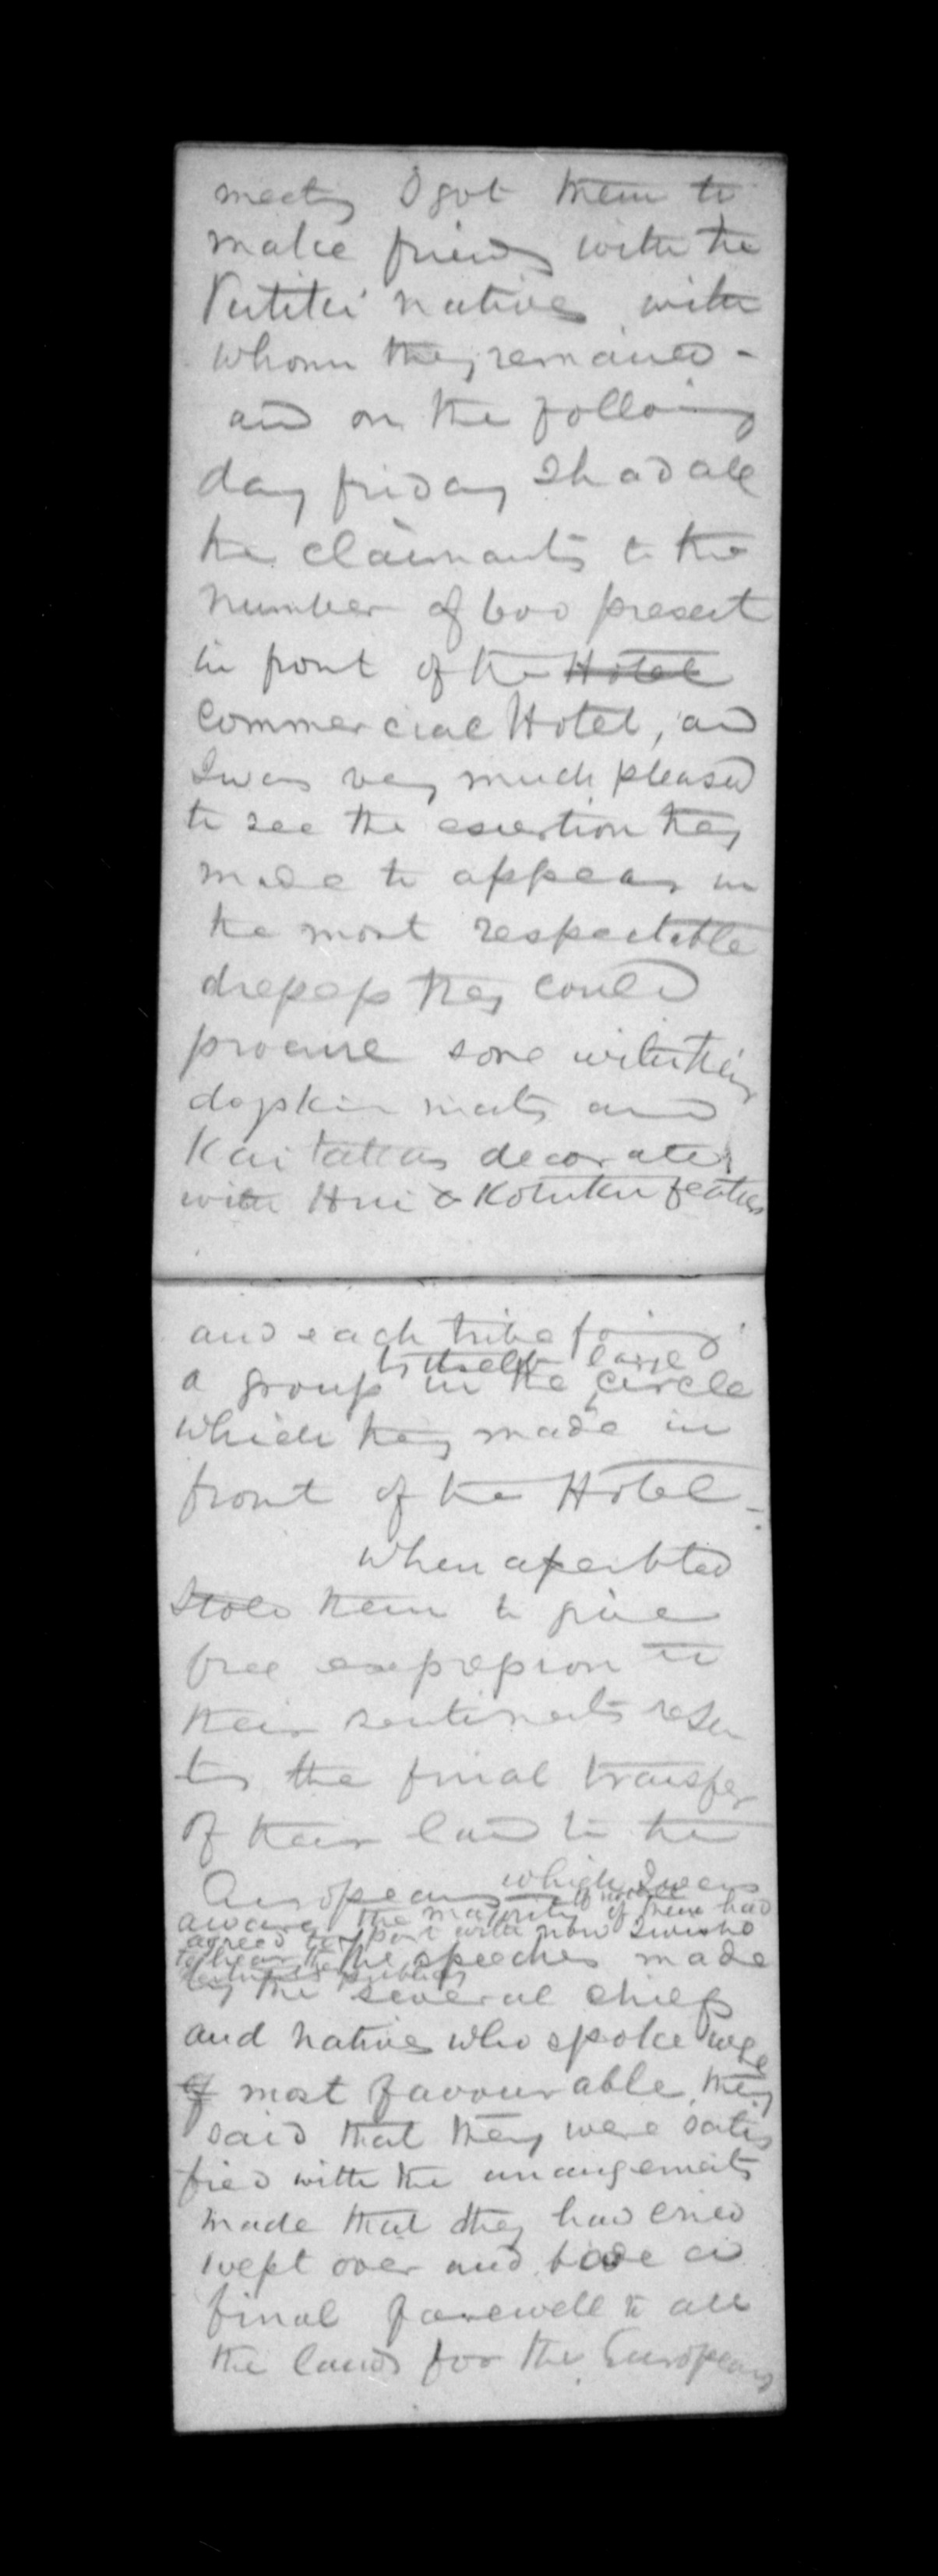 meeting I got them to
make friends with the
Putiki natives with
whom they remained -
and on the following
day friday I had all
the claimants to the
number of 600 present
in front of the Hotel
Commercial Hotel, and
I was very much pleased
to see the exertion they
made to appear in
the most respectable
dresses they could
procure some with their
dogskin mats and
Kaitakas decorated
with Hui & Kotuku feathers
and each tribe forming
a group by itself in the large circle
which they made in
front of the Hotel -
When assembled
I told them to give
free expression to
their sentiments
the final transfer
of their land to the
Europeans which I was
aware the majority of them had
agreed to part with now I wished
to hear
the speeches made
by the several chiefs
and natives who spoke were
of most favourable, they
said that they were satis
fied with the arrangements
made that they had cried
wept over and bade a
final farewell to all
the lands for the Europeans